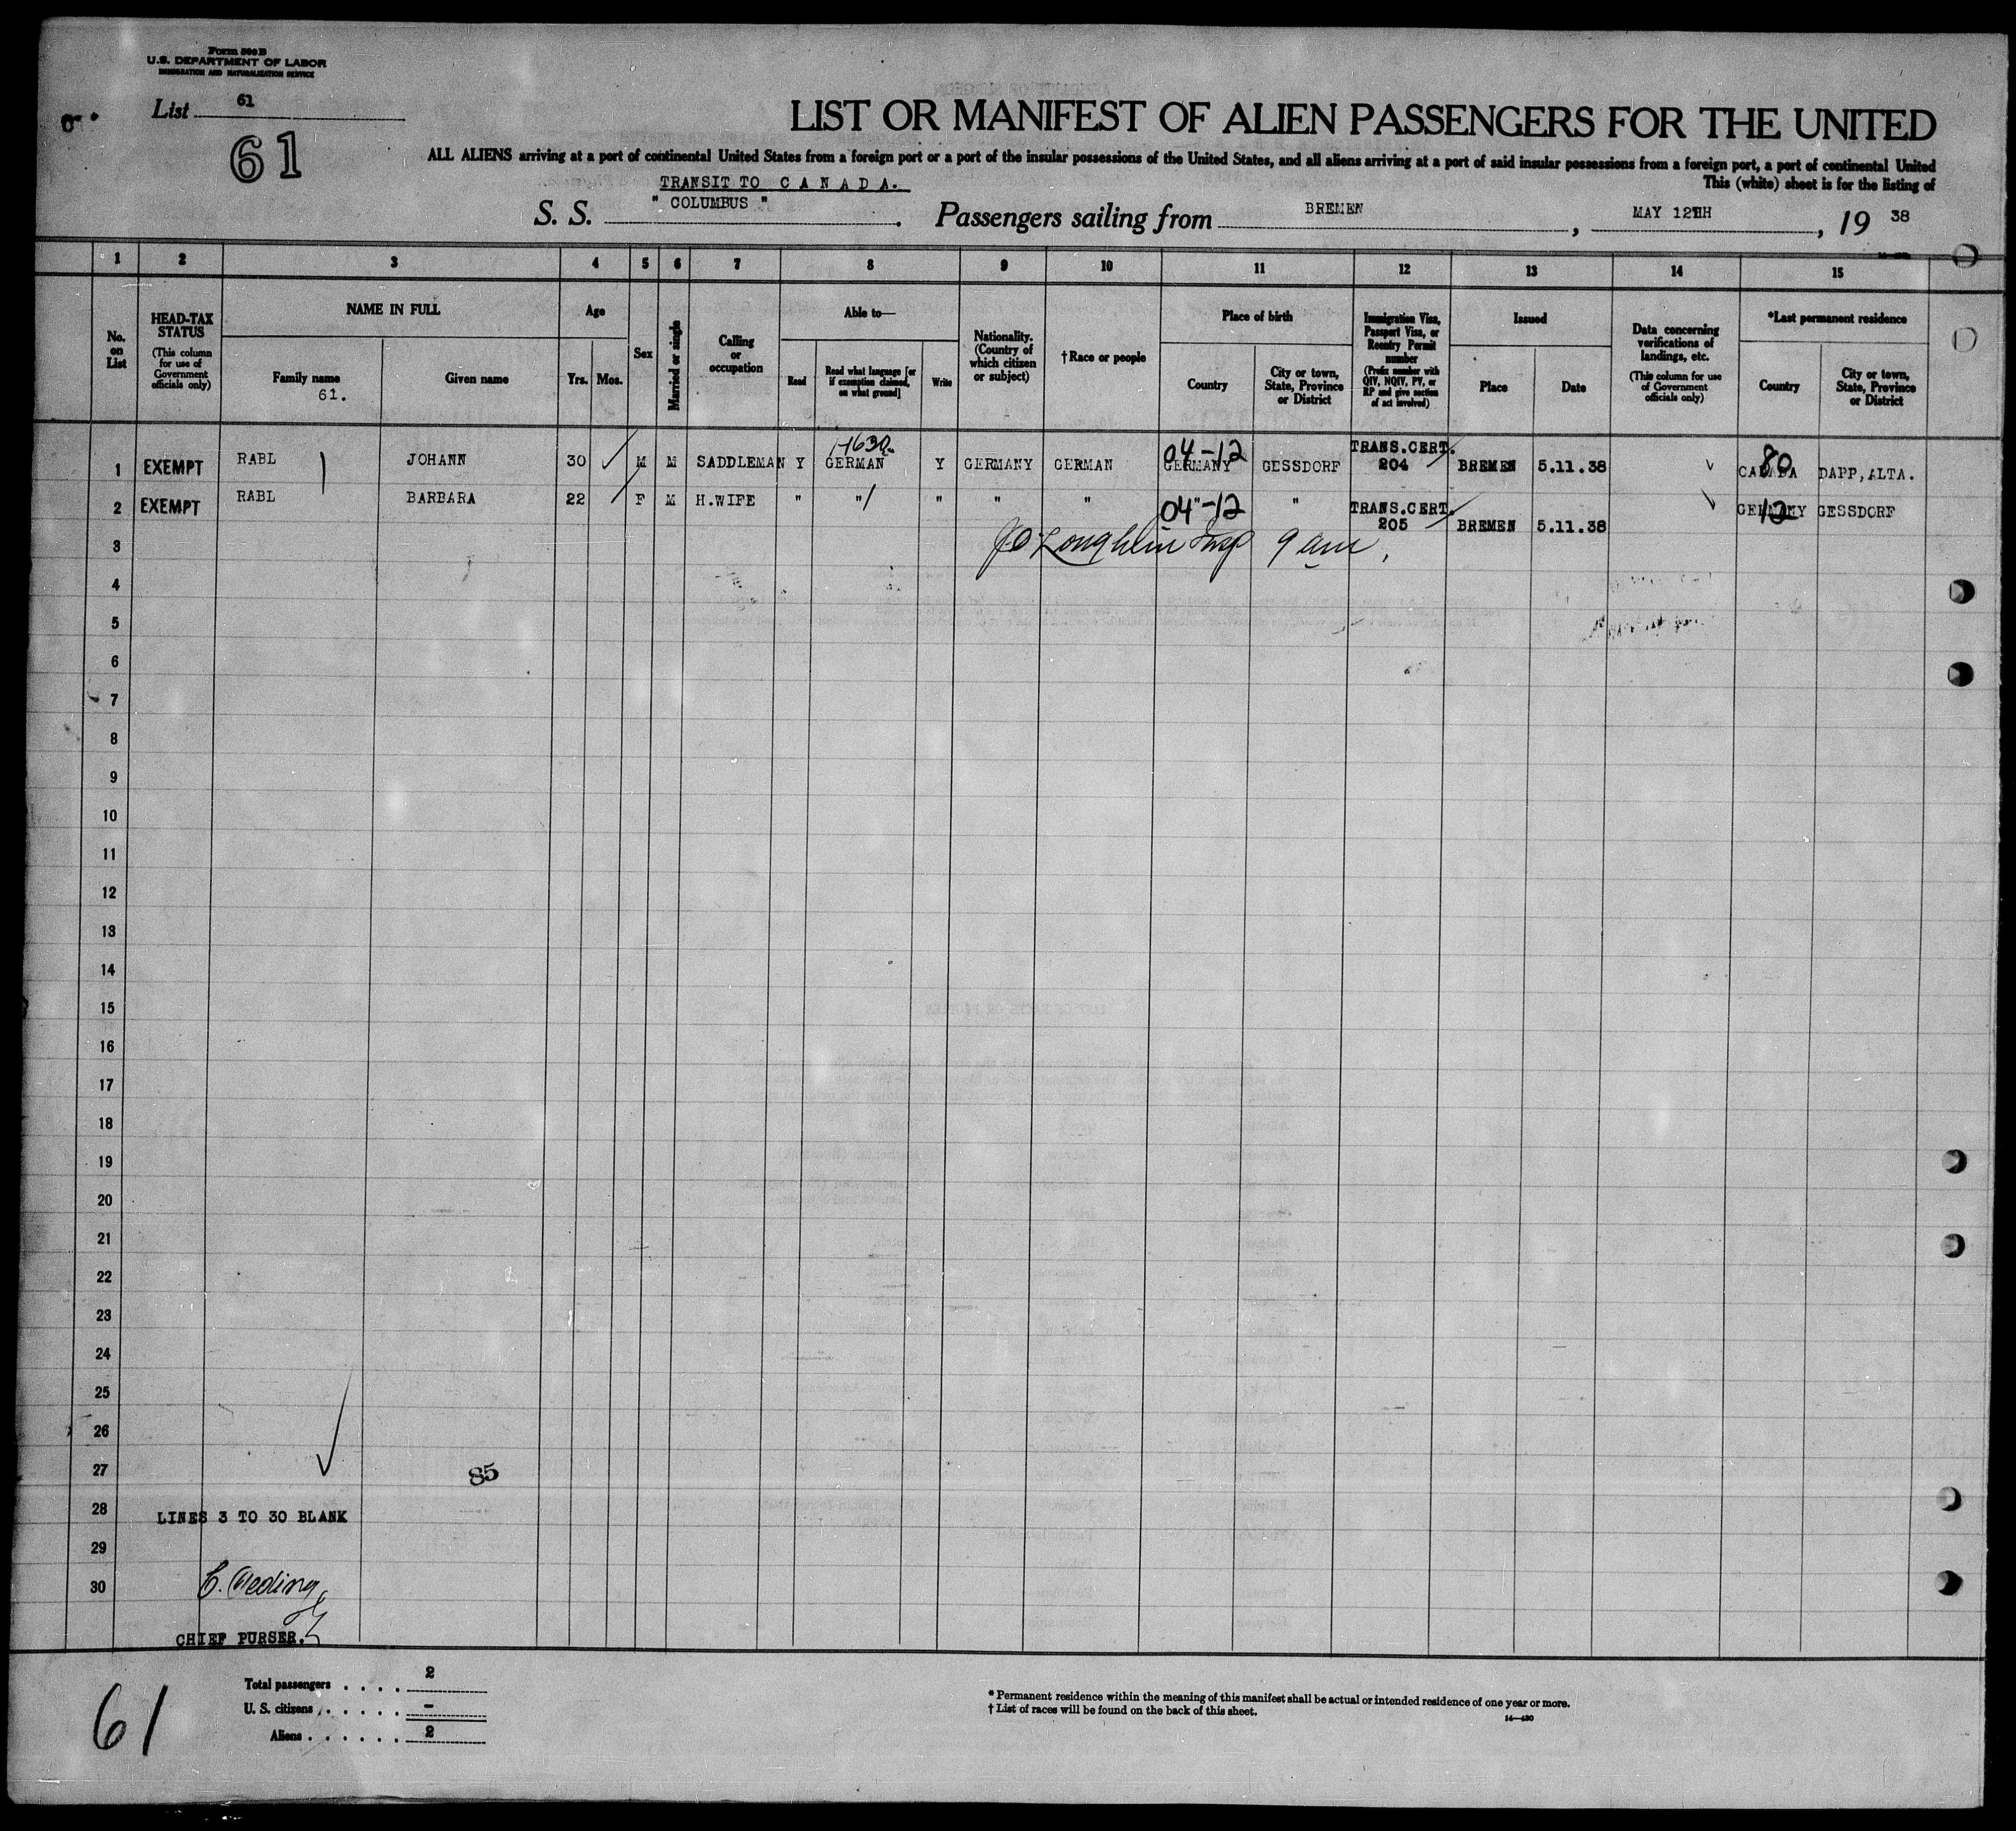 Form 500 B
U.S. DEPARTMENT OF LABOR
IMMIGRATION AND NATURALIZATION SERVICE
List 61
61
LIST OR MANIFEST OF ALIEN PASSENGERS FOR THE UNITED
ALL ALIENS arriving at a port of continental United States from a foreign port or a port of the insular possessions of the United States, and all aliens arriving at a port of said insular possessions from a foreign port, a port of continental United
This (white) sheet is for the listing of
TRANSIT TO C A N A D A.
S. S. " COLUMBUS ". Passengers sailing from BREMEN, MAY 12TH, 19 38
1 2 3 4 5 6 7 8 9 10 11 12 13 14 15
No. on List
HEAD-TAX STATUS (This column for use of Government officials only)
NAME IN FULL
Family name
61.
Given name
Age
Yrs. Mos.
Sex
Married or single
Calling or occupation
Able to—
Read
Read what language [or if exemption claimed, on what ground]
Write
Nationality. (Country of which citizen or subject)
†Race or people
Place of birth
Country
City or town, State, Province or District
Immigration Visa, Passport Visa, or Reentry Permit number (Prefix number with QIV, NQIV, PV, or RP and give section of act involved)
Issued
Place
Date
Data concerning verifications of landings, etc. (This column for use of Government officials only)
*Last permanent residence
Country
City or town, State, Province or District
1 EXEMPT RABL JOHANN 30 M M SADDLEMAN Y GERMAN Y GERMANY GERMAN 04-12 GERMANY GESSDORF TRANS.CERT. 204 BREMEN 5.11.38 80 CANADA DAPP, ALTA.
2 EXEMPT RABL BARBARA 22 F M H.WIFE " " " " " 04-12 " " TRANS.CERT. 205 BREMEN 5.11.38 12 GERMANY GESSDORF
3 Insp 9 am
4
5
6
7
8
9
10
11
12
13
14
15
16
17
18
19
20
21
22
23
24
25
26
27 85
28 LINES 3 TO 30 BLANK
29
30
CHIEF PURSER.
61
Total passengers . . . . 2
U. S. citizens . . . . . –
Aliens . . . . . . 2
* Permanent residence within the meaning of this manifest shall be actual or intended residence of one year or more.
† List of races will be found on the back of this sheet.
14—430